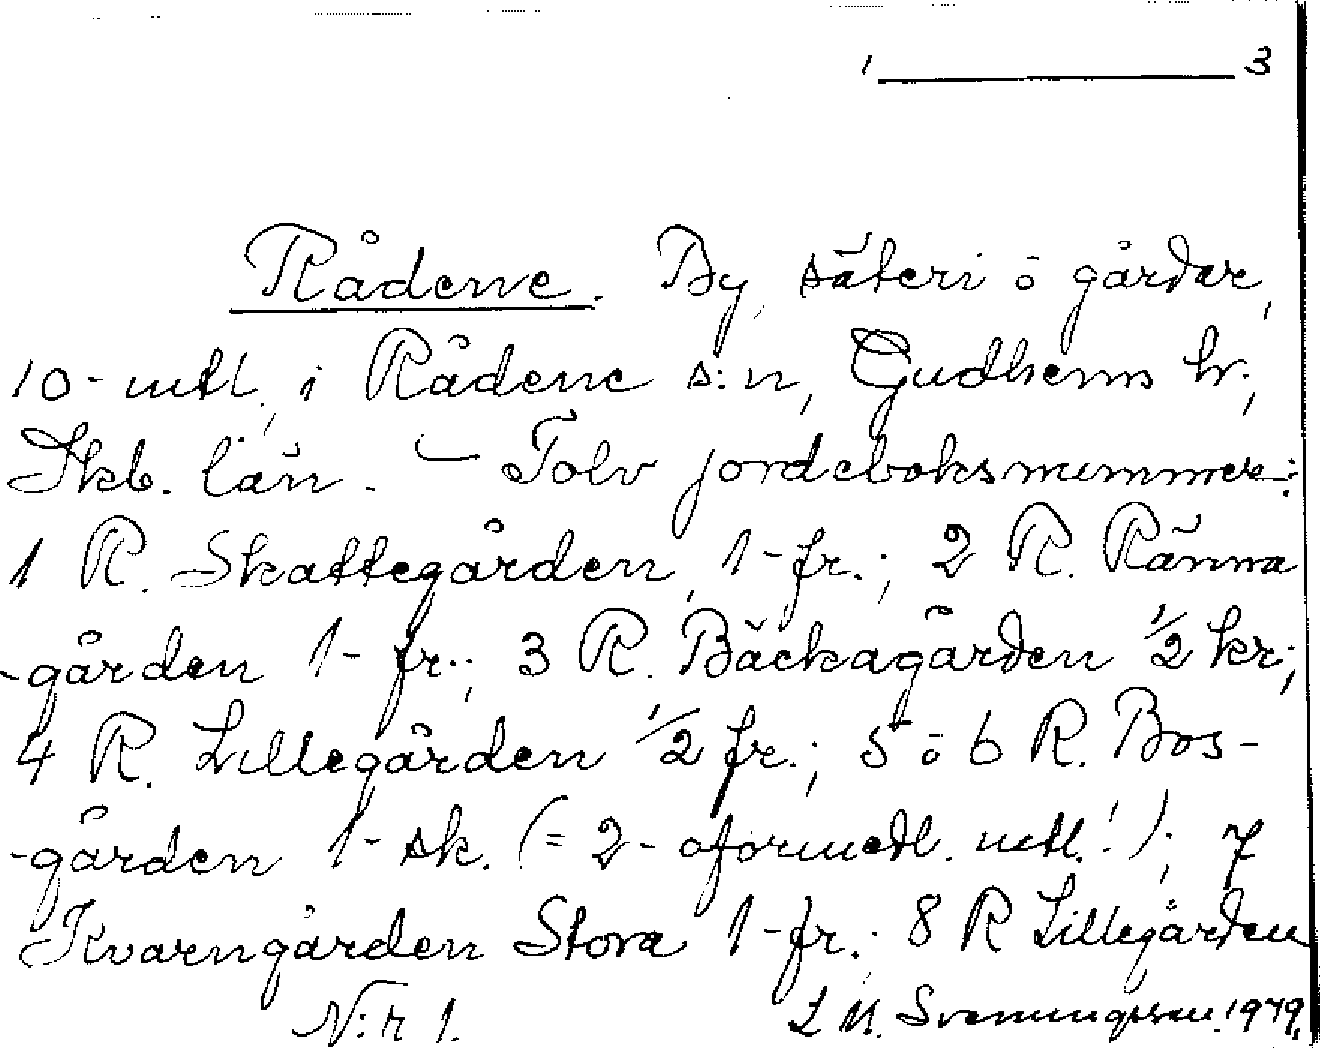 1 ——— 3
Rådene. By, säteri o gårdar,
10- mtl, i Rådene s:n, Gudhems hr,
Skb. län. - Tolv jordeboksnummer:
1 R. Skattegården, 1- fr.; 2 R. Ränna
-gården 1- fr.; 3 R. Bäckagården 1/2 kr;
4 R. Lillegården 1/2 fr.; 5 o 6 R. Bos-
-gården 1- sk. (= 2- oförmedl. mtl.!); 7
Kvarngården Stora 1- fr.; 8 R Lillegården
N:r 1. L M. Svenungsson. 1979.